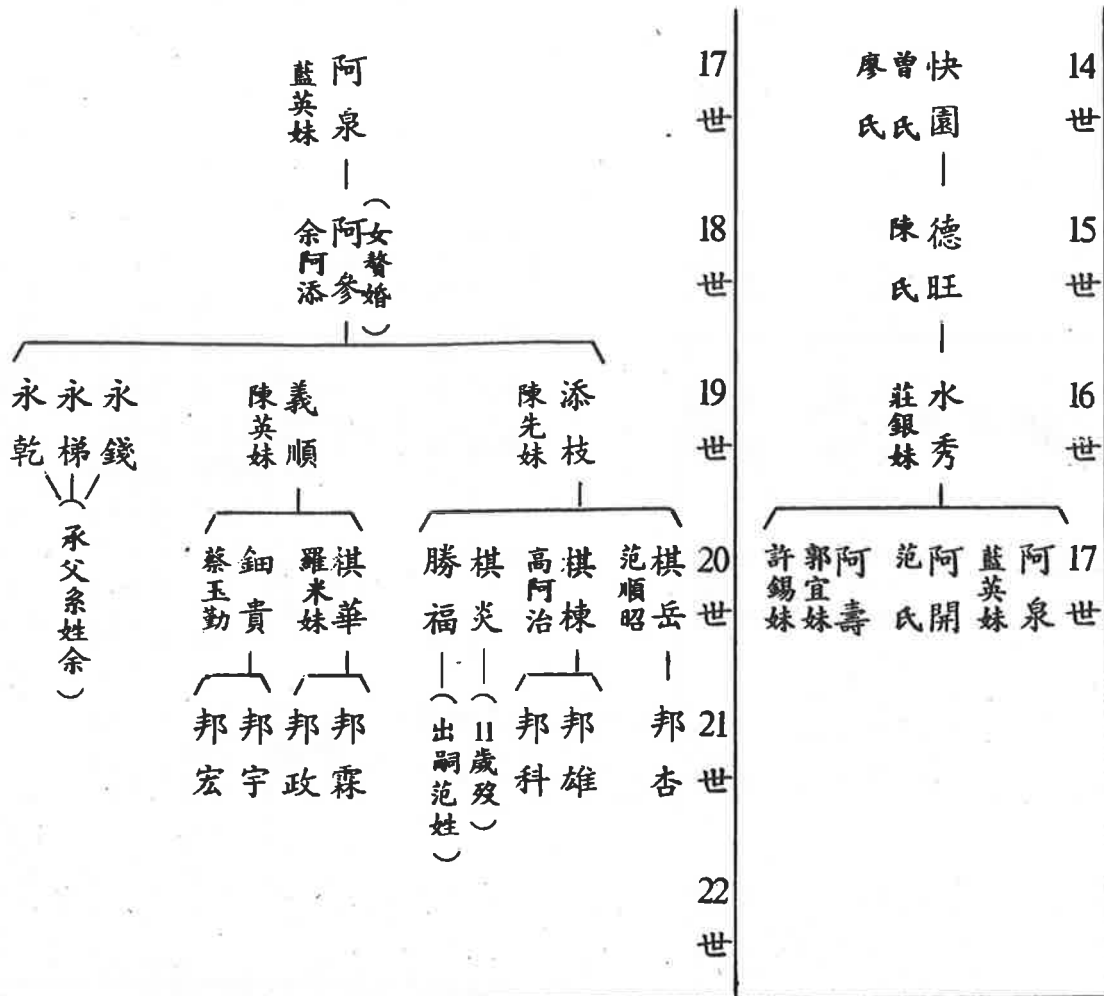 14世
快園
曾氏
廖氏
15世
德旺
陳氏
16世
水秀
莊銀妹
17世
阿泉
藍英妹
阿開
范氏
阿壽
郭宜妹
許錫妹
17世
阿泉
藍英妹
18世
（女贅婚）
阿參
余阿添
19世
添枝
陳先妹
義順
陳英妹
永錢
永梯
永乾
（承父系姓余）
20世
棋岳
范順昭
棋棟
高阿治
棋炎
勝福
祺華
羅米妹
鈿貴
蔡玉勤
21世
邦杏
邦雄
邦科
（11歲歿）
（出嗣范姓）
邦霖
邦政
邦宇
邦宏
22世